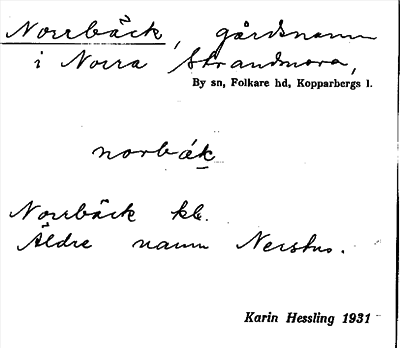 Norrbäck, gårdsnamn
i Norra Strandmora,
By sn, Folkare hd, Kopparbergs l.
norbäk
Norrbäck kb.
Äldre namn Nerstus.
Karin Hessling 1931